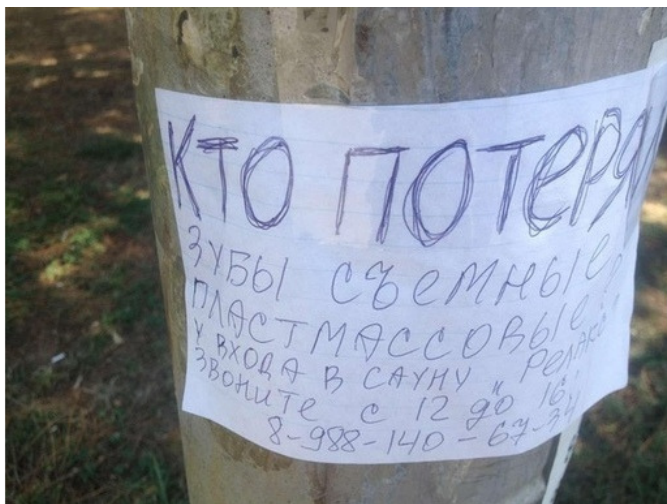 КТО ПОТЕРЯ
ЗУБЫ СЪЕМНЫЕ
ПЛАСТМАССОВЫЕ?
У ВХОДА В САУНУ „РЕЛАКС"
ЗВОНИТЕ С 12 ДО 16.
8-988-140-67-34